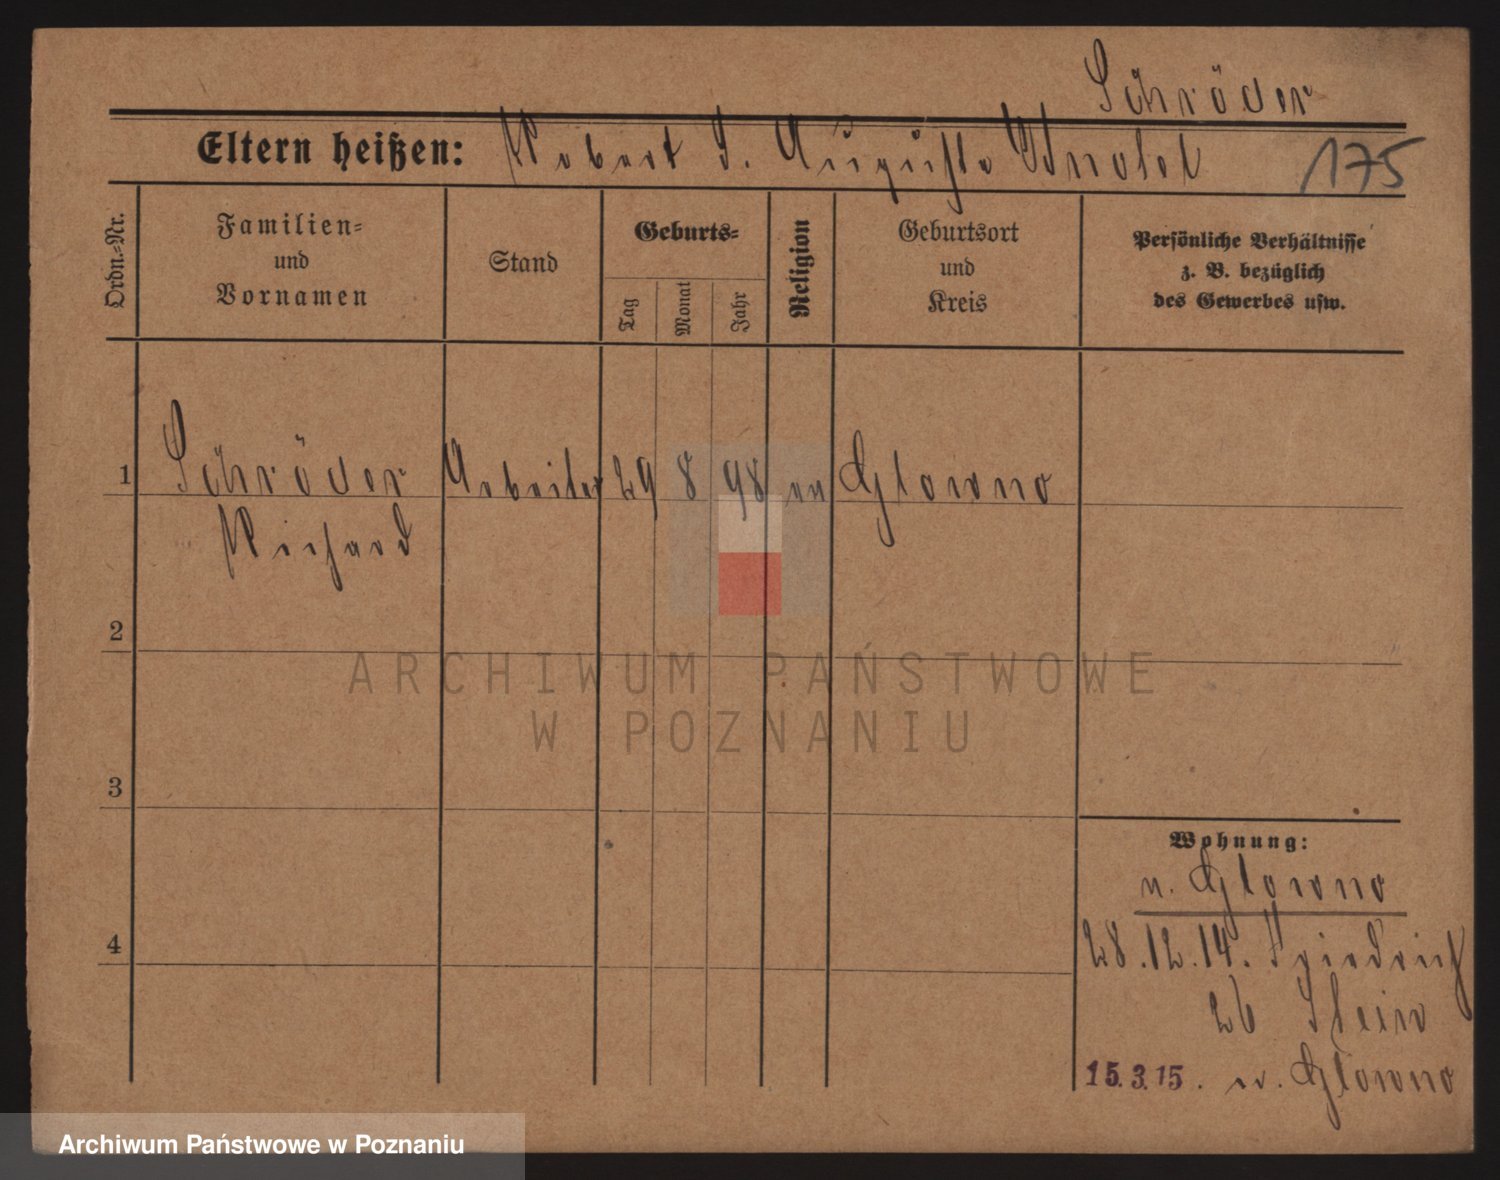 Schröder
Eltern heißen: Robert S. Auguste Knobel 175
Ordn.-Nr.
Familien- und Vornamen
Stand
Geburts-
Tag
Monat
Jahr
Religion
Geburtsort und Kreis
Persönliche Verhältnisse
z. B. bezüglich
des Gewerbes usw.
1 Schröder Arbeiter 29 8 98 ev Glowno
Richard
2
3
4
Wohnung:
n. Glowno
28.12.14. Friedrich
26 Stein
15.3.15. n. Glowno
ARCHIWUM PAŃSTWOWE
W POZNANIU
Archiwum Państwowe w Poznaniu